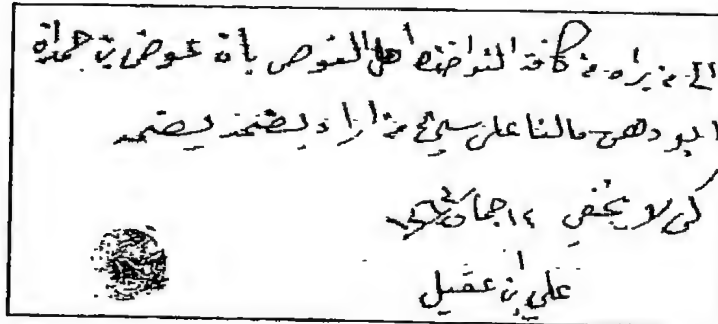 الى من يراه من كافة النواخذه اهل الغوص بان عوض بن حمداه
ابو دهن مالنا عليه شيء من اراد يضمنه يضمنه
كي لا يخفى ١٤ جماد
علي بن عقيل